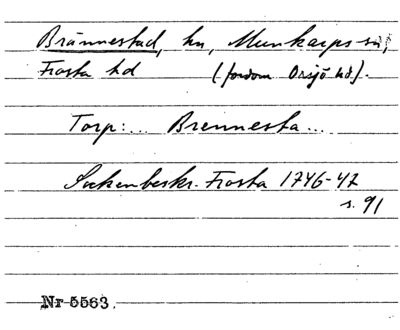 Brännestad, hn, Munkarps sn,
Frosta hd (fordom Onsjö hd).
Torp:... Brennesta...
Sockenbeskr. Frosta 1746-47
s. 91
Nr 5563.